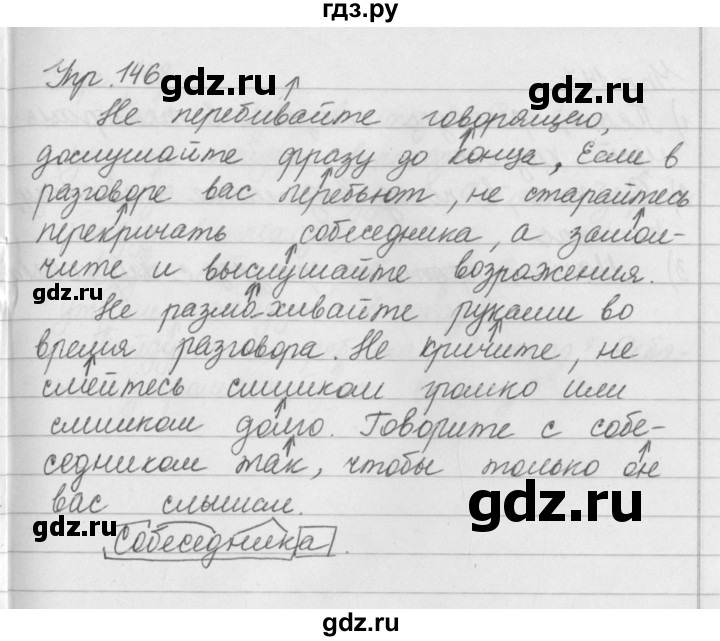 гдз.ру
Упр. 146
gdz.ru
gdz.ru
Не перебивайте говорящего,
дослушайте фразу до конца, Если в
разговоре вас перебьют, не старайтесь
перекричать собеседника, а замол-
чите и выслушайте возражения.
gdz.ru
Не размахивайте руками во
время разговора. Не кричите, не
смейтесь слишком громко или
слишком долго. Говорите с собе-
седником так, чтобы только он
вас слышал.
gdz.ru
gdz.ru
Собеседника.
gdz.ru